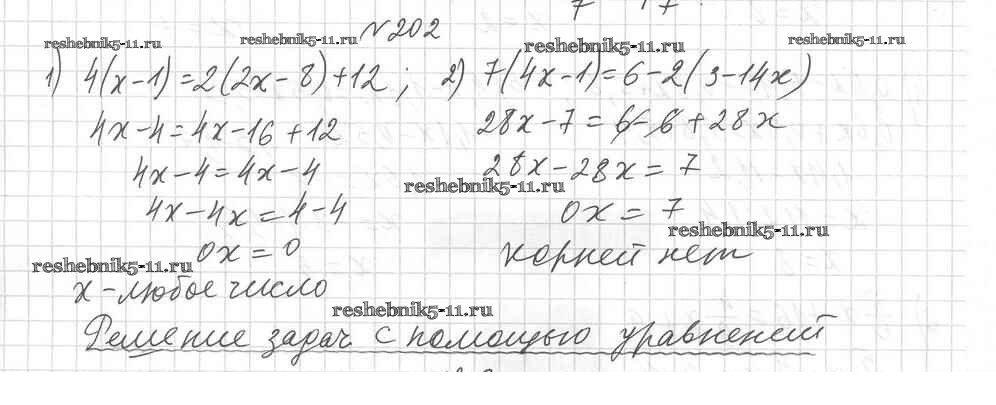 №202
1) 4(x-1)=2(2x-8)+12; 2) 7(4x-1)=6-2(3-14x)
4x-4=4x-16+12
28x-7=6-6+28x
4x-4=4x-4
28x-28x=7
4x-4x=4-4
0x=7
0x=0
корней нет
x-любое число
Решение задач с помощью уравнений
reshebnik5-11.ru
reshebnik5-11.ru
reshebnik5-11.ru
reshebnik5-11.ru
reshebnik5-11.ru
reshebnik5-11.ru
reshebnik5-11.ru
reshebnik5-11.ru